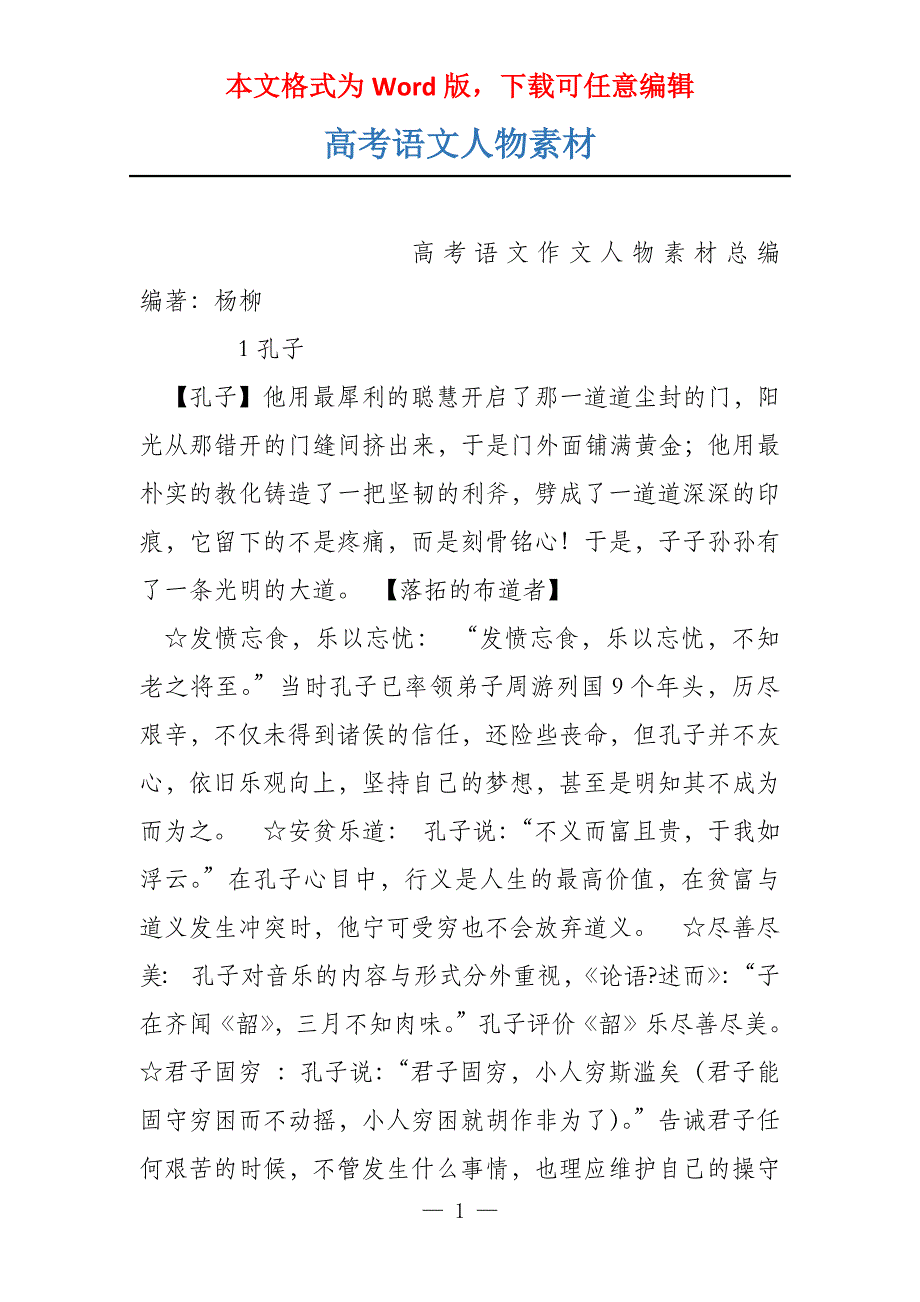 本文格式为 Word 版，下载可任意编辑
高考语文人物素材
高考语文作文人物素材总编
编著：杨柳
1 孔子
【孔子】他用最犀利的聪慧开启了那一道道尘封的门，阳
光从那错开的门缝间挤出来，于是门外面铺满黄金；他用最
朴实的教化铸造了一把坚韧的利斧，劈成了一道道深深的印
痕，它留下的不是疼痛，而是刻骨铭心！于是，子子孙孙有
了一条光明的大道。 【落拓的布道者】
☆发愤忘食，乐以忘忧： “发愤忘食，乐以忘忧，不知
老之将至。”当时孔子已率领弟子周游列国 9 个年头，历尽
艰辛，不仅未得到诸侯的信任，还险些丧命，但孔子并不灰
心，依旧乐观向上，坚持自己的梦想，甚至是明知其不成为
而为之。 ☆安贫乐道： 孔子说：“不义而富且贵，于我如
浮云。”在孔子心目中，行义是人生的最高价值，在贫富与
道义发生冲突时，他宁可受穷也不会放弃道义。 ☆尽善尽
美： 孔子对音乐的内容与形式分外重视，《论语?述而》：“子
在齐闻《韶》，三月不知肉味。”孔子评价《韶》乐尽善尽美。
☆君子固穷 ：孔子说：“君子固穷，小人穷斯滥矣（君子能
固守穷困而不动摇，小人穷困就胡作非为了）。”告诫君子任
何艰苦的时候，不管发生什么事情，也理应维护自己的操守
— 1 —